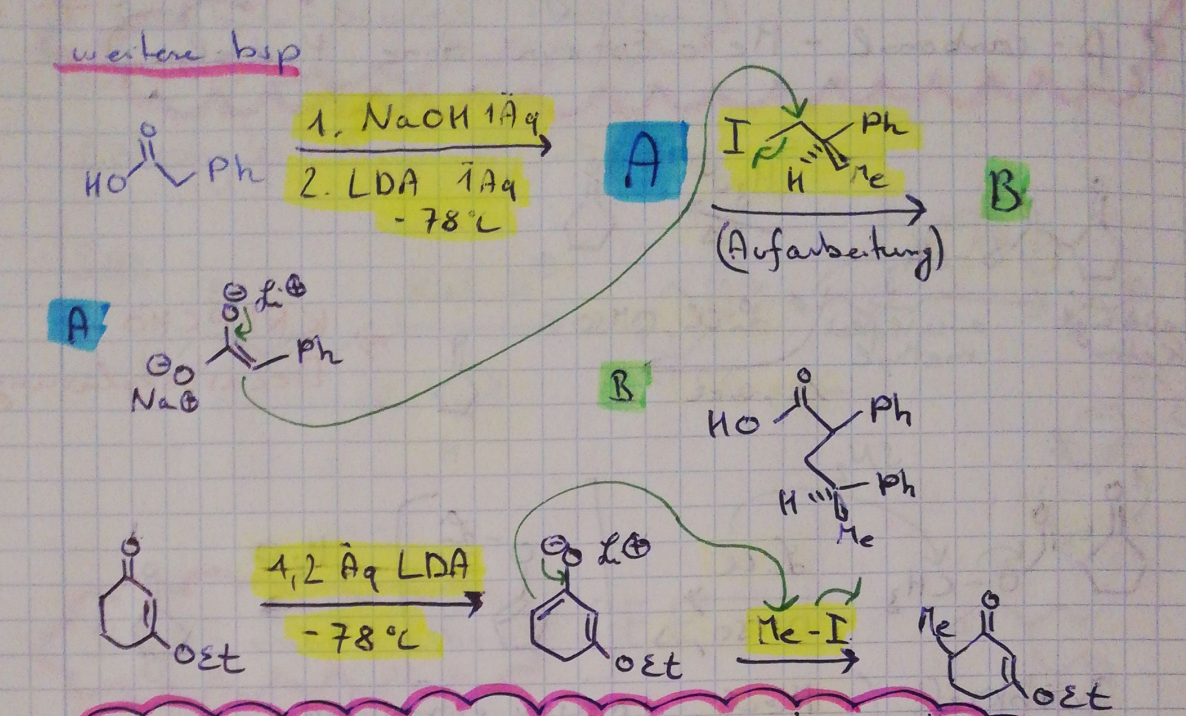 weitere bsp
1. NaOH 1Äq
2. LDA 1Äq
-78°C
O
HO Ph
A
I Ph
H Me
(Aufarbeitung)
B
A
⊖ Li⊕
O
⊖O Ph
Na⊕
B
O
HO Ph
H Ph
Me
O
OEt
1,2 Äq LDA
-78°C
⊖O Li⊕
OEt
Me-I
Me O
OEt